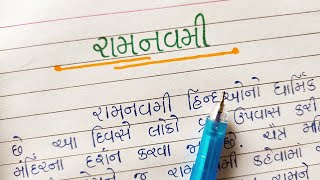 રામનવમી
રામનવમી હિન્દુઓનો ધાર્મિક
છે. આ દિવસે લોકો ઉપવાસ કરી
મંદિરના દર્શન કરવા જ છે. ચૈત્ર
જ રામ કહેવામાં